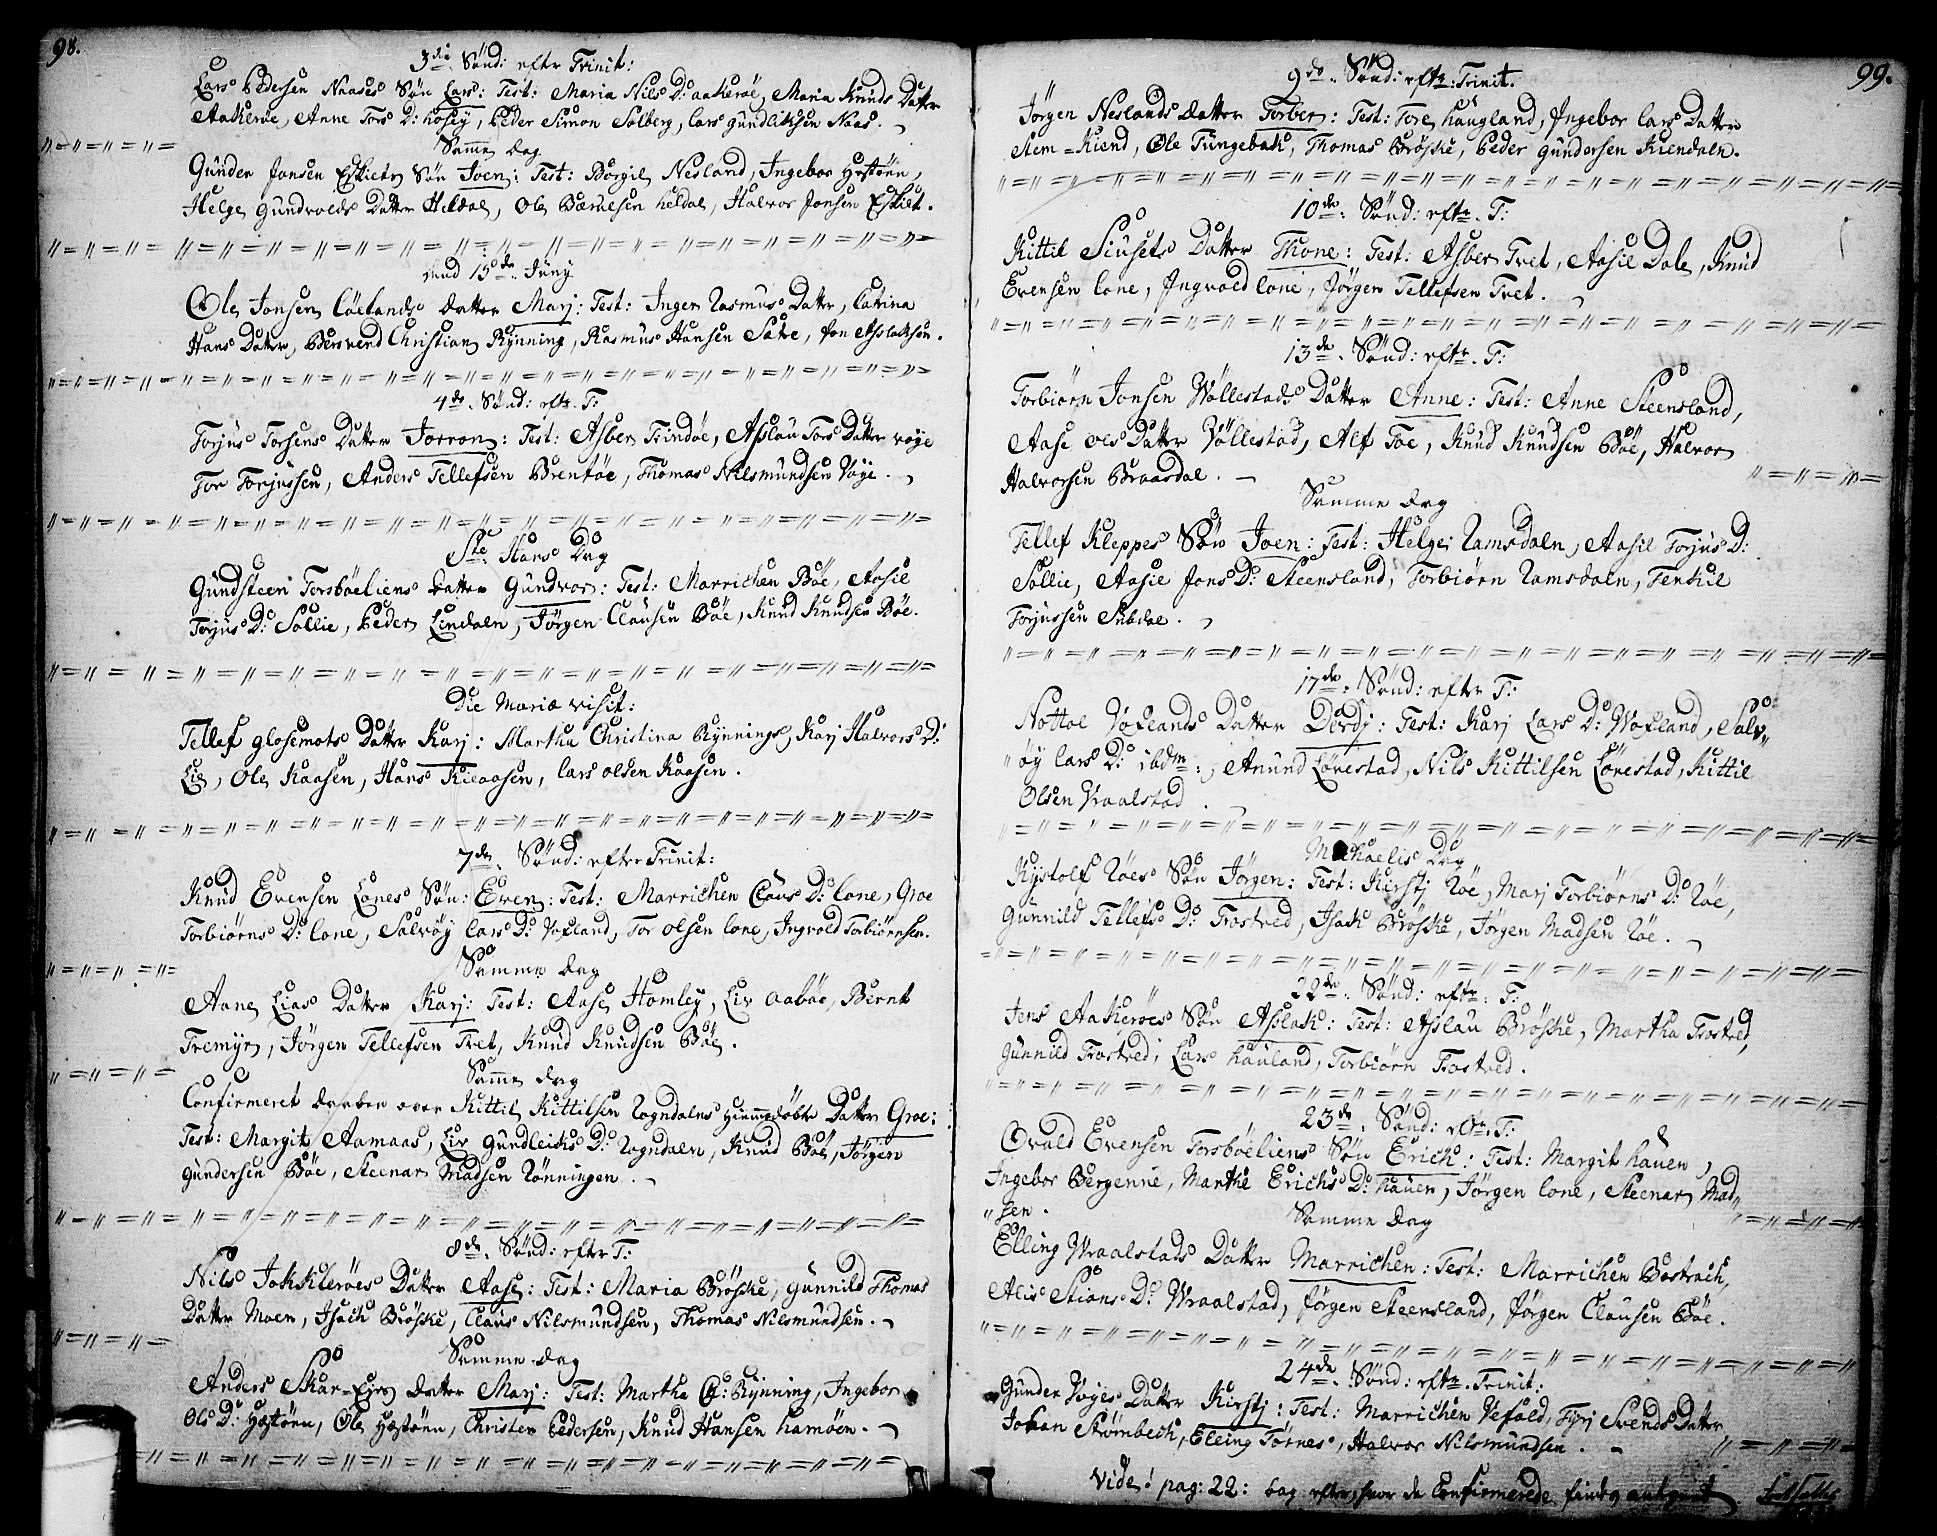 98.
3die Sönd: efter Trinit:
Lars Pedersen Naases Sön Lars: Test: Maria Nils D: Aakeröe, Maria Knuds Datter
Aakeröe, Anne Tors D: Hosey, Peder Simon Solberg, Lars Gundliksen Naas.
Samme Dag
Gunder Jonsen Eskilts Sön Joen: Test: Borgil Nesland, Ingebor Hestöen,
Helge Gundvalds Datter Heldal, Ole Bærulsen Heldal, Halvor Jonsen Eskilt.
dend 15de Juny
Ole Jonsen Löelands Datter Marj: Test: Inger Rasmus Datter, Catrina
Hans Datter, Berrend Christian Rynning, Rasmus Hansen Satre, Jon Aslaksen.
4de Sönd: eftr. T:
Torjus Torsens Datter Jorron: Test: Asber Trindöe, Asslau Tors Datter Vöye
Tor Torjussen, Anders Tellefsen Brentöe, Thomas Nilsmundsen Vöye.
Ste Hans Dag
Gundsteen Torsböeliens Datter Gundvor: Test: Marrichen Böe, Aasil
Torjus D: Sollie, Peder Lindaln, Jörgen Clausen Böe, Knud Knudsen Böe.
Die Mariæ visit:
Tellef Glosemots Datter Karj: Martha Christina Rynnings, Karj Halvors D:
Lie, Ole Kaasen, Hans Kieaasen, Lars Olsen Kaasen.
7de Sönd: efter Trinit:
Knud Evensen Lones Sön: Even: Test: Marrichen Claus D: Lone, Groe
Torbiörns D: Lone, Salvöy Lars D: Vefland, Tor Olsen Lone, Ingvold Torbiörnsen.
Samme Dag
Aane Lias Datter Karj: Test: Aase Homley, Liv Aaböe, Bernt
Tremyr, Jörgen Tellefsen Tvet, Knud Knudsen Böe.
Samme Dag
Confirmeret Daaben over Kittil Kittilsen Rogndalns Hiemmedöbte Datter Groe:
Test: Margit Aamaas, Liv Gundleiks D: Rogndaln, Knud Böe, Jörgen
Gundersen Böe, Steenar Madsen Rönningen.
8de Sönd: efter T:
Nils Jokkleröes Datter Aase: Test: Maria Bröske, Gunnild Thomas
Datter Moen, Isach Bröske, Claus Nilsmundsen, Thomas Nilsmundsen.
Samme Dag
Anders Skar-Eyes Datter Marj: Test: Martha C: Rynning, Ingebor
Ols D: Hestöen, Ole Hestöen, Christen Pedersen, Knud Hansen Hamöen.
99.
9de Sönd: eftr: Trinit.
Jörgen Neslands Datter Torber: Test: Tore Haugland, Ingebor Lars Datter
Stem-Kiend, Ole Tungebak, Thomas Bröske, Peder Gundersen Kiendaln.
10de Sönd: eftr. T:
Kittil Siusets Datter Thone: Test: Asber Tvet, Aasil Dale, Knud
Evensen Lone, Ingvold Lone, Jörgen Tellefsen Tvet.
13de Sönd: eftr. T:
Torbiörn Jonsen Völlestads Datter Anne: Test: Anne Steensland,
Aase Ols Datter Völlestad, Alf Toe, Knud Knudsen Böe, Halvor
Halvorsen Braasdal.
Samme Dag
Tellef Kleppes Sön Joen: Test: Helge Ramsdaln, Aasil Torjus D:
Sollie, Aasie Jons D: Steensland, Torbiörn Ramsdaln, Terkil
Torjussen Subdal.
17de Sönd: efter T:
Nottol Veflands Datter Dordj: Test: Karj Lars D: Wefland, Salv-
öy Lars D: ibdm:, Anund Lövestad, Nils Kittilsen Lövestad, Kittil
Olsen Vraalstad.
Michaelis Dag
Kystolf Röes Sön Jörgen: Test: Kirstj Röe, Marj Torbiörns D: Röe,
Gunnild Tellefs D: Trostved, Isach Bröske, Jörgen Madsen Röe.
22de Sönd: eftr: T:
Jens Aakeröes Sön Asslak: Test: Asslau Bröske, Martha Trostved,
Gunnild Trostved, Lars Hauland, Torbiörn Trostved.
23de Sönd: eftr. T:
Orald Evensen Torsböeliens Sön Erich: Test: Margit Hauen,
Ingebor Bergenne, Marthe Erichs D: Hauen, Jörgen Lone, Steenar Mad-
sen.
Samme Dag
Elling Wraalstads Datter Marrichen: Test: Marrichen Bostrach,
Alis Stians D: Wraalstad, Jörgen Steensland, Jörgen Clausen Böe.
24de Sönd: eftr. Trinit:
Gunder Vöyes Datter Kirstj: Test: Marrichen Vefald, Tyrj Svends Datter
Johan Strömbech, Elling Törnes, Halvor Nilsmundsen.
Vide! pag: 22: bag efter, hvor de Confirmerede findes antegnet